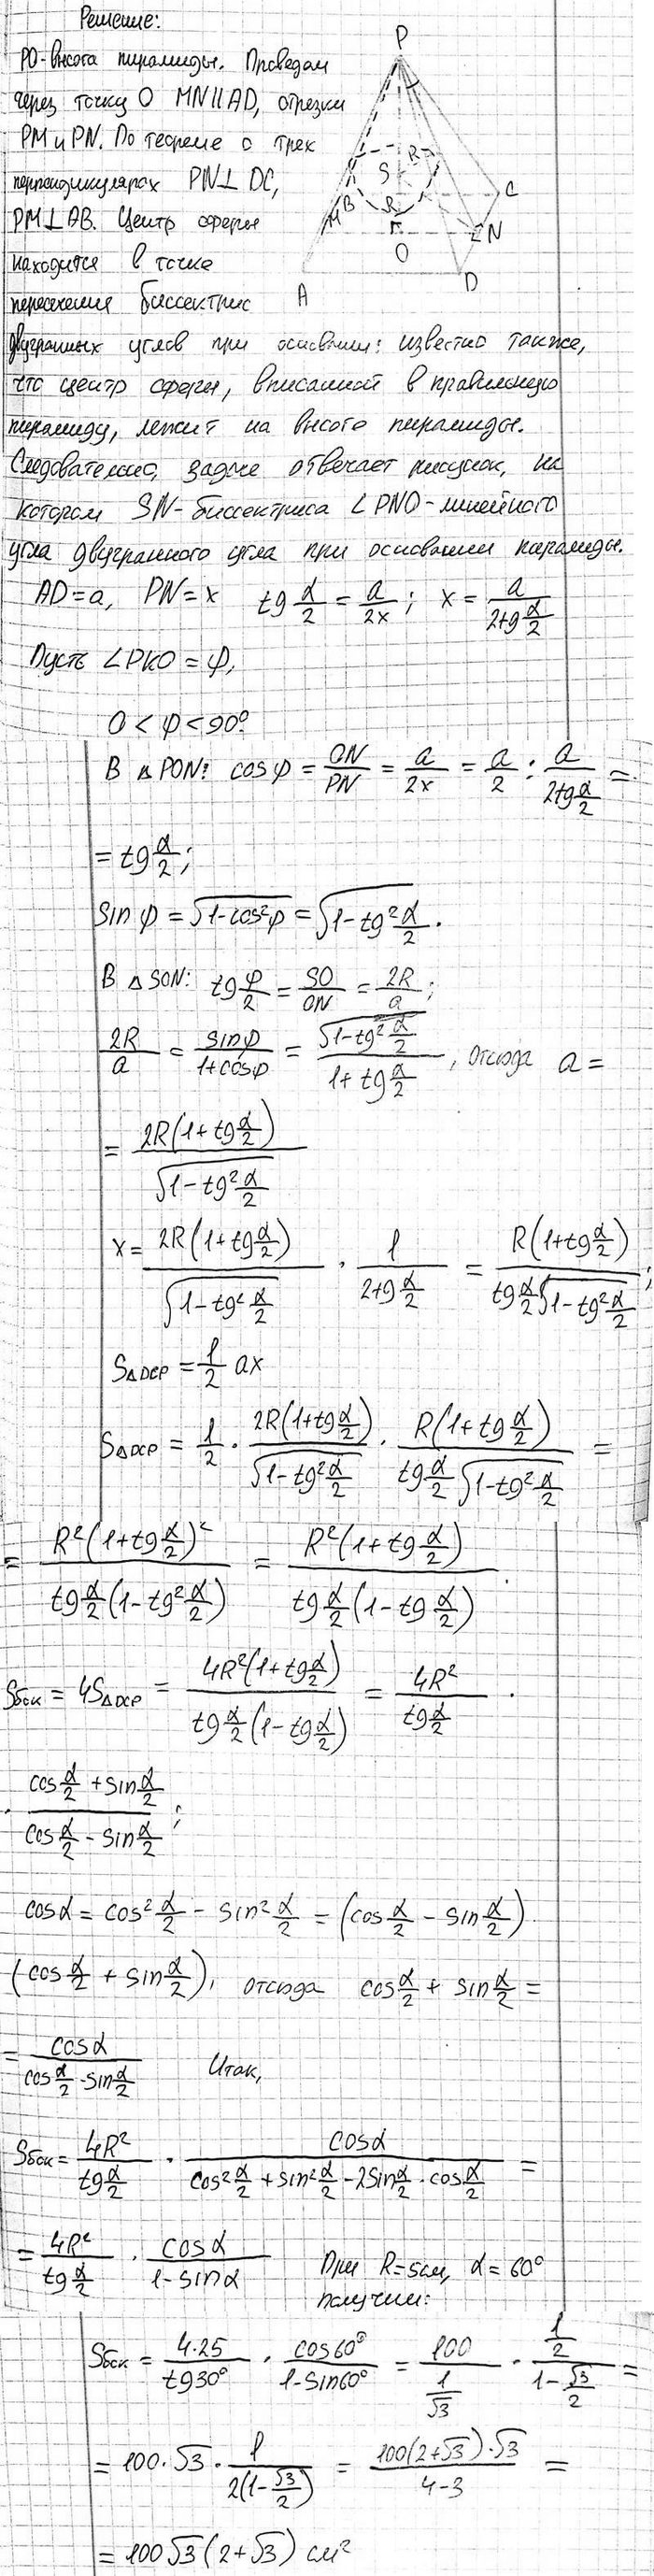 Решение:
PO-высота пирамиды. Проведем
через точку O MN||AD, отрезки
PM и PN. По теореме о трех
перпендикулярах PN⊥DC,
PM⊥AB. Центр сферы
находится в точке
пересечения биссектрис
P
R
S
C
B
M
R
N
O
D
A
двугранных углов при основании: известно также,
что центр сферы, вписанной в правильную
пирамиду, лежит на высоте пирамиды.
Следовательно, задаче отвечает рисунок, на
котором SN-биссектриса ∠PNO-линейного
угла двугранного угла при основании пирамиды.
AD=a, PN=x tg α/2 = a/2x; x = a/(2tg α/2)
Пусть ∠PKO = φ,
0 < φ < 90°
В △PON: cos φ = ON/PN = a/2x = a/2 : a/(2tg α/2) =
= tg α/2;
sin φ = √(1-cos²φ) = √(1-tg² α/2).
В △SON: tg φ/2 = SO/ON = 2R/a;
2R/a = sinφ/(1+cosφ) = √(1-tg² α/2)/(1+tg α/2), отсюда a =
= 2R(1+tg α/2)/√(1-tg² α/2)
x = 2R(1+tg α/2)/√(1-tg² α/2) · 1/(2tg α/2) = R(1+tg α/2)/(tg α/2 √(1-tg² α/2));
S△DCP = 1/2 ax
S△DCP = 1/2 · 2R(1+tg α/2)/√(1-tg² α/2) · R(1+tg α/2)/(tg α/2 √(1-tg² α/2)) =
= R²(1+tg α/2)²/(tg α/2 (1-tg² α/2)) = R²(1+tg α/2)/(tg α/2 (1-tg α/2)).
Sбок = 4S△DCP = 4R²(1+tg α/2)/(tg α/2 (1-tg α/2)) = 4R²/(tg α/2) ·
· (cos α/2 + sin α/2)/(cos α/2 - sin α/2);
cosα = cos² α/2 - sin² α/2 = (cos α/2 - sin α/2)·
(cos α/2 + sin α/2), отсюда cos α/2 + sin α/2 =
= cosα/(cos α/2 - sin α/2) Итак,
Sбок = 4R²/(tg α/2) · cosα/(cos² α/2 + sin² α/2 - 2sin α/2 · cos α/2) =
= 4R²/(tg α/2) · cosα/(1-sinα) При R=5см, α=60°
получим:
Sбок = 4·25/tg30° · cos60°/(1-sin60°) = 100/(1/√3) · (1/2)/(1-√3/2) =
= 100·√3 · 1/(2(1-√3/2)) = 100(2+√3)·√3/(4-3) =
= 100√3(2+√3) см²